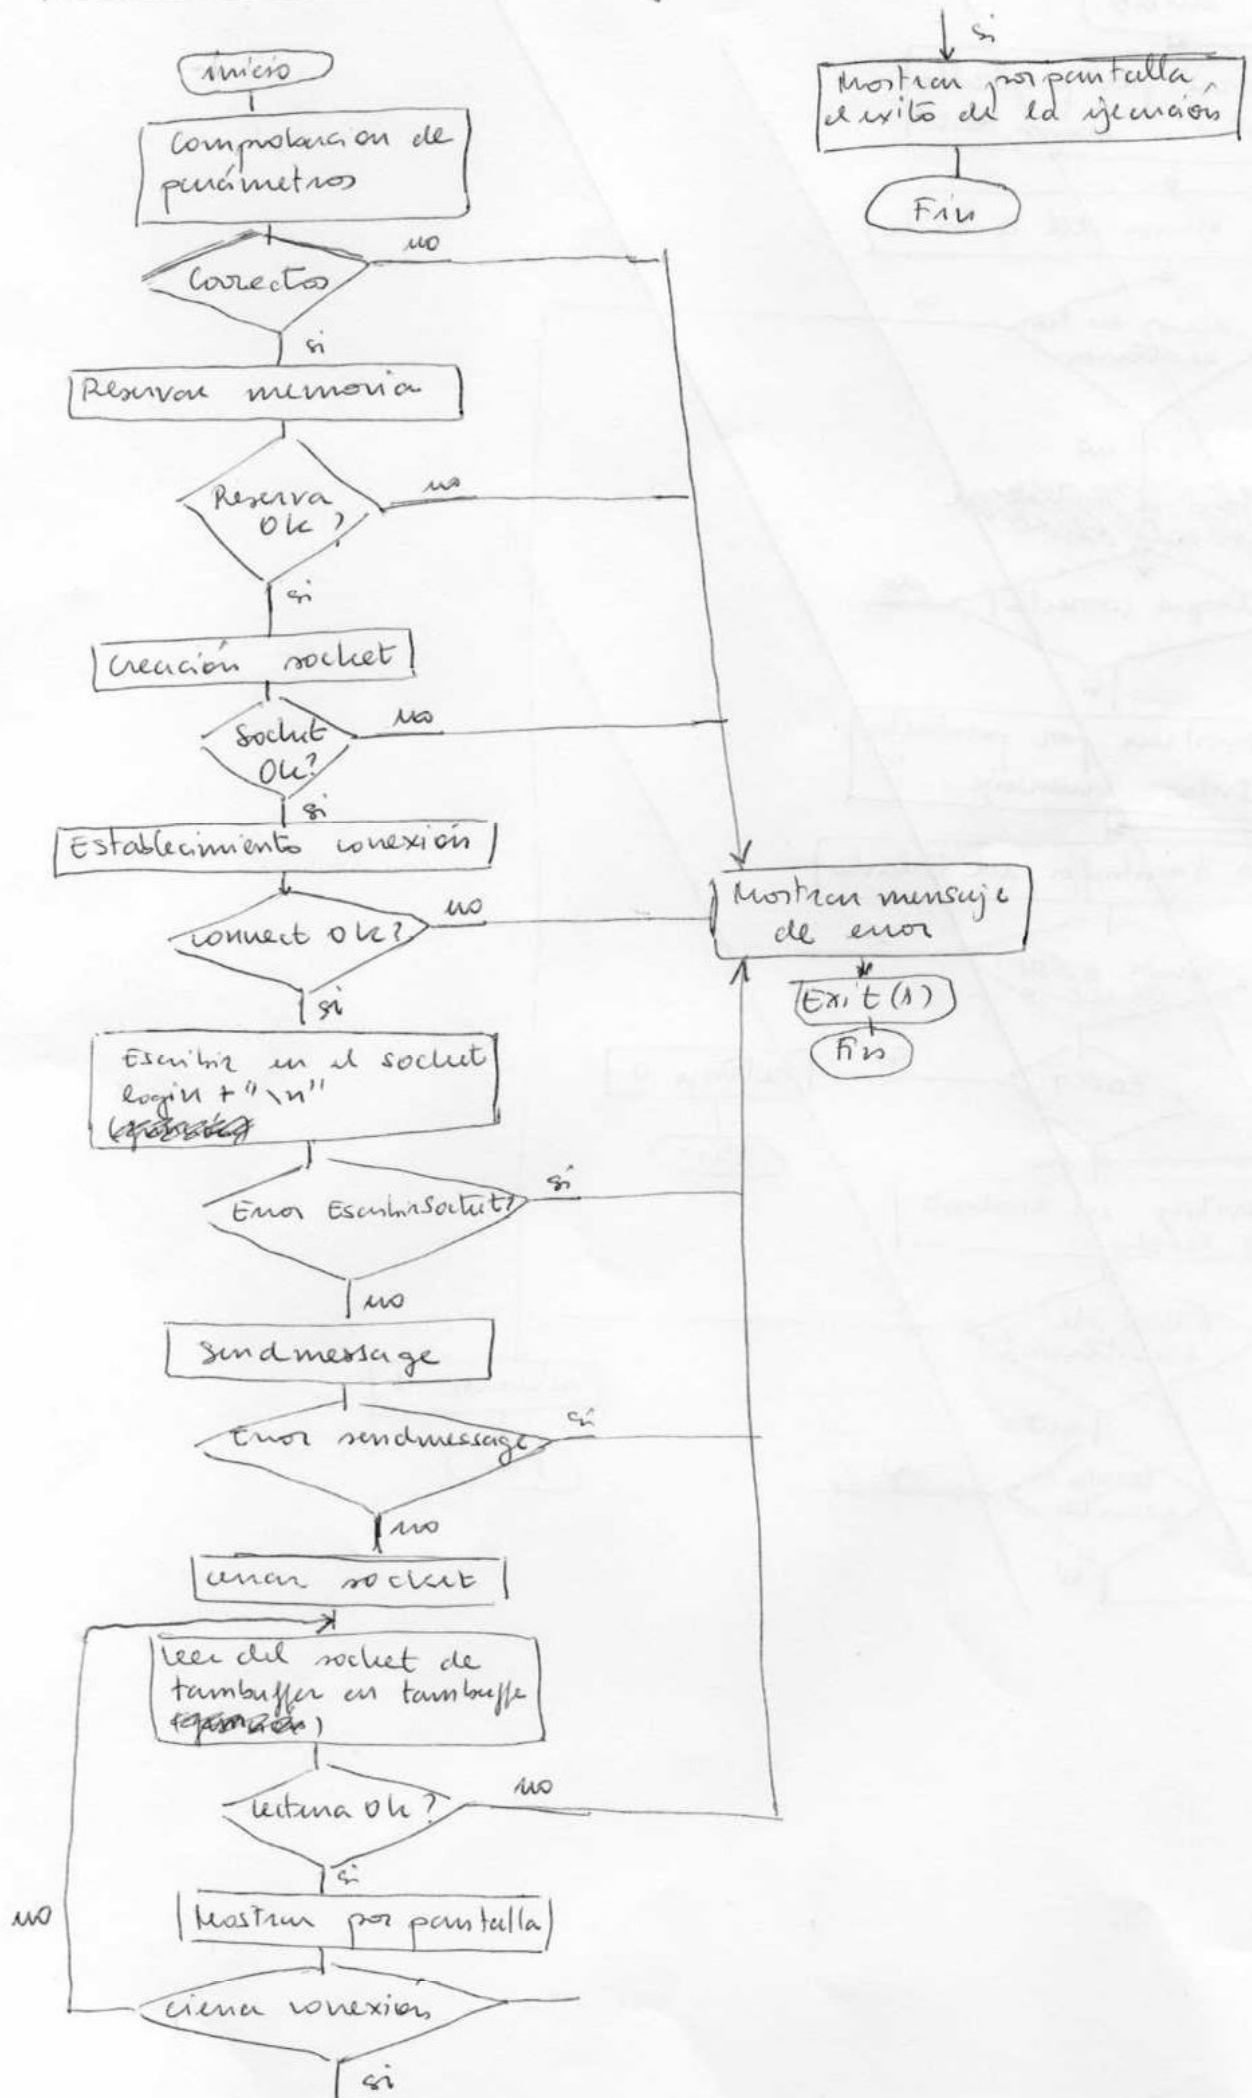 inicio
Comprobacion de
parámetros
Correctos
no
si
Reservar memoria
Reserva
Ok?
no
si
Creación socket
Socket
Ok?
no
si
Establecimiento conexión
connect Ok?
no
si
Escribir en el socket
login + "\n"
Error EscribirSocket?
si
no
Sendmessage
Error sendmessage
si
no
cerrar socket
Leer del socket de
tambuffer en tambuffe
lectura Ok?
no
si
Mostrar por pantalla
cierra conexión
no
si
Mostrar mensaje
de error
Exit(1)
Fin
si
Mostrar por pantalla
el exito de la ejecución
Fin